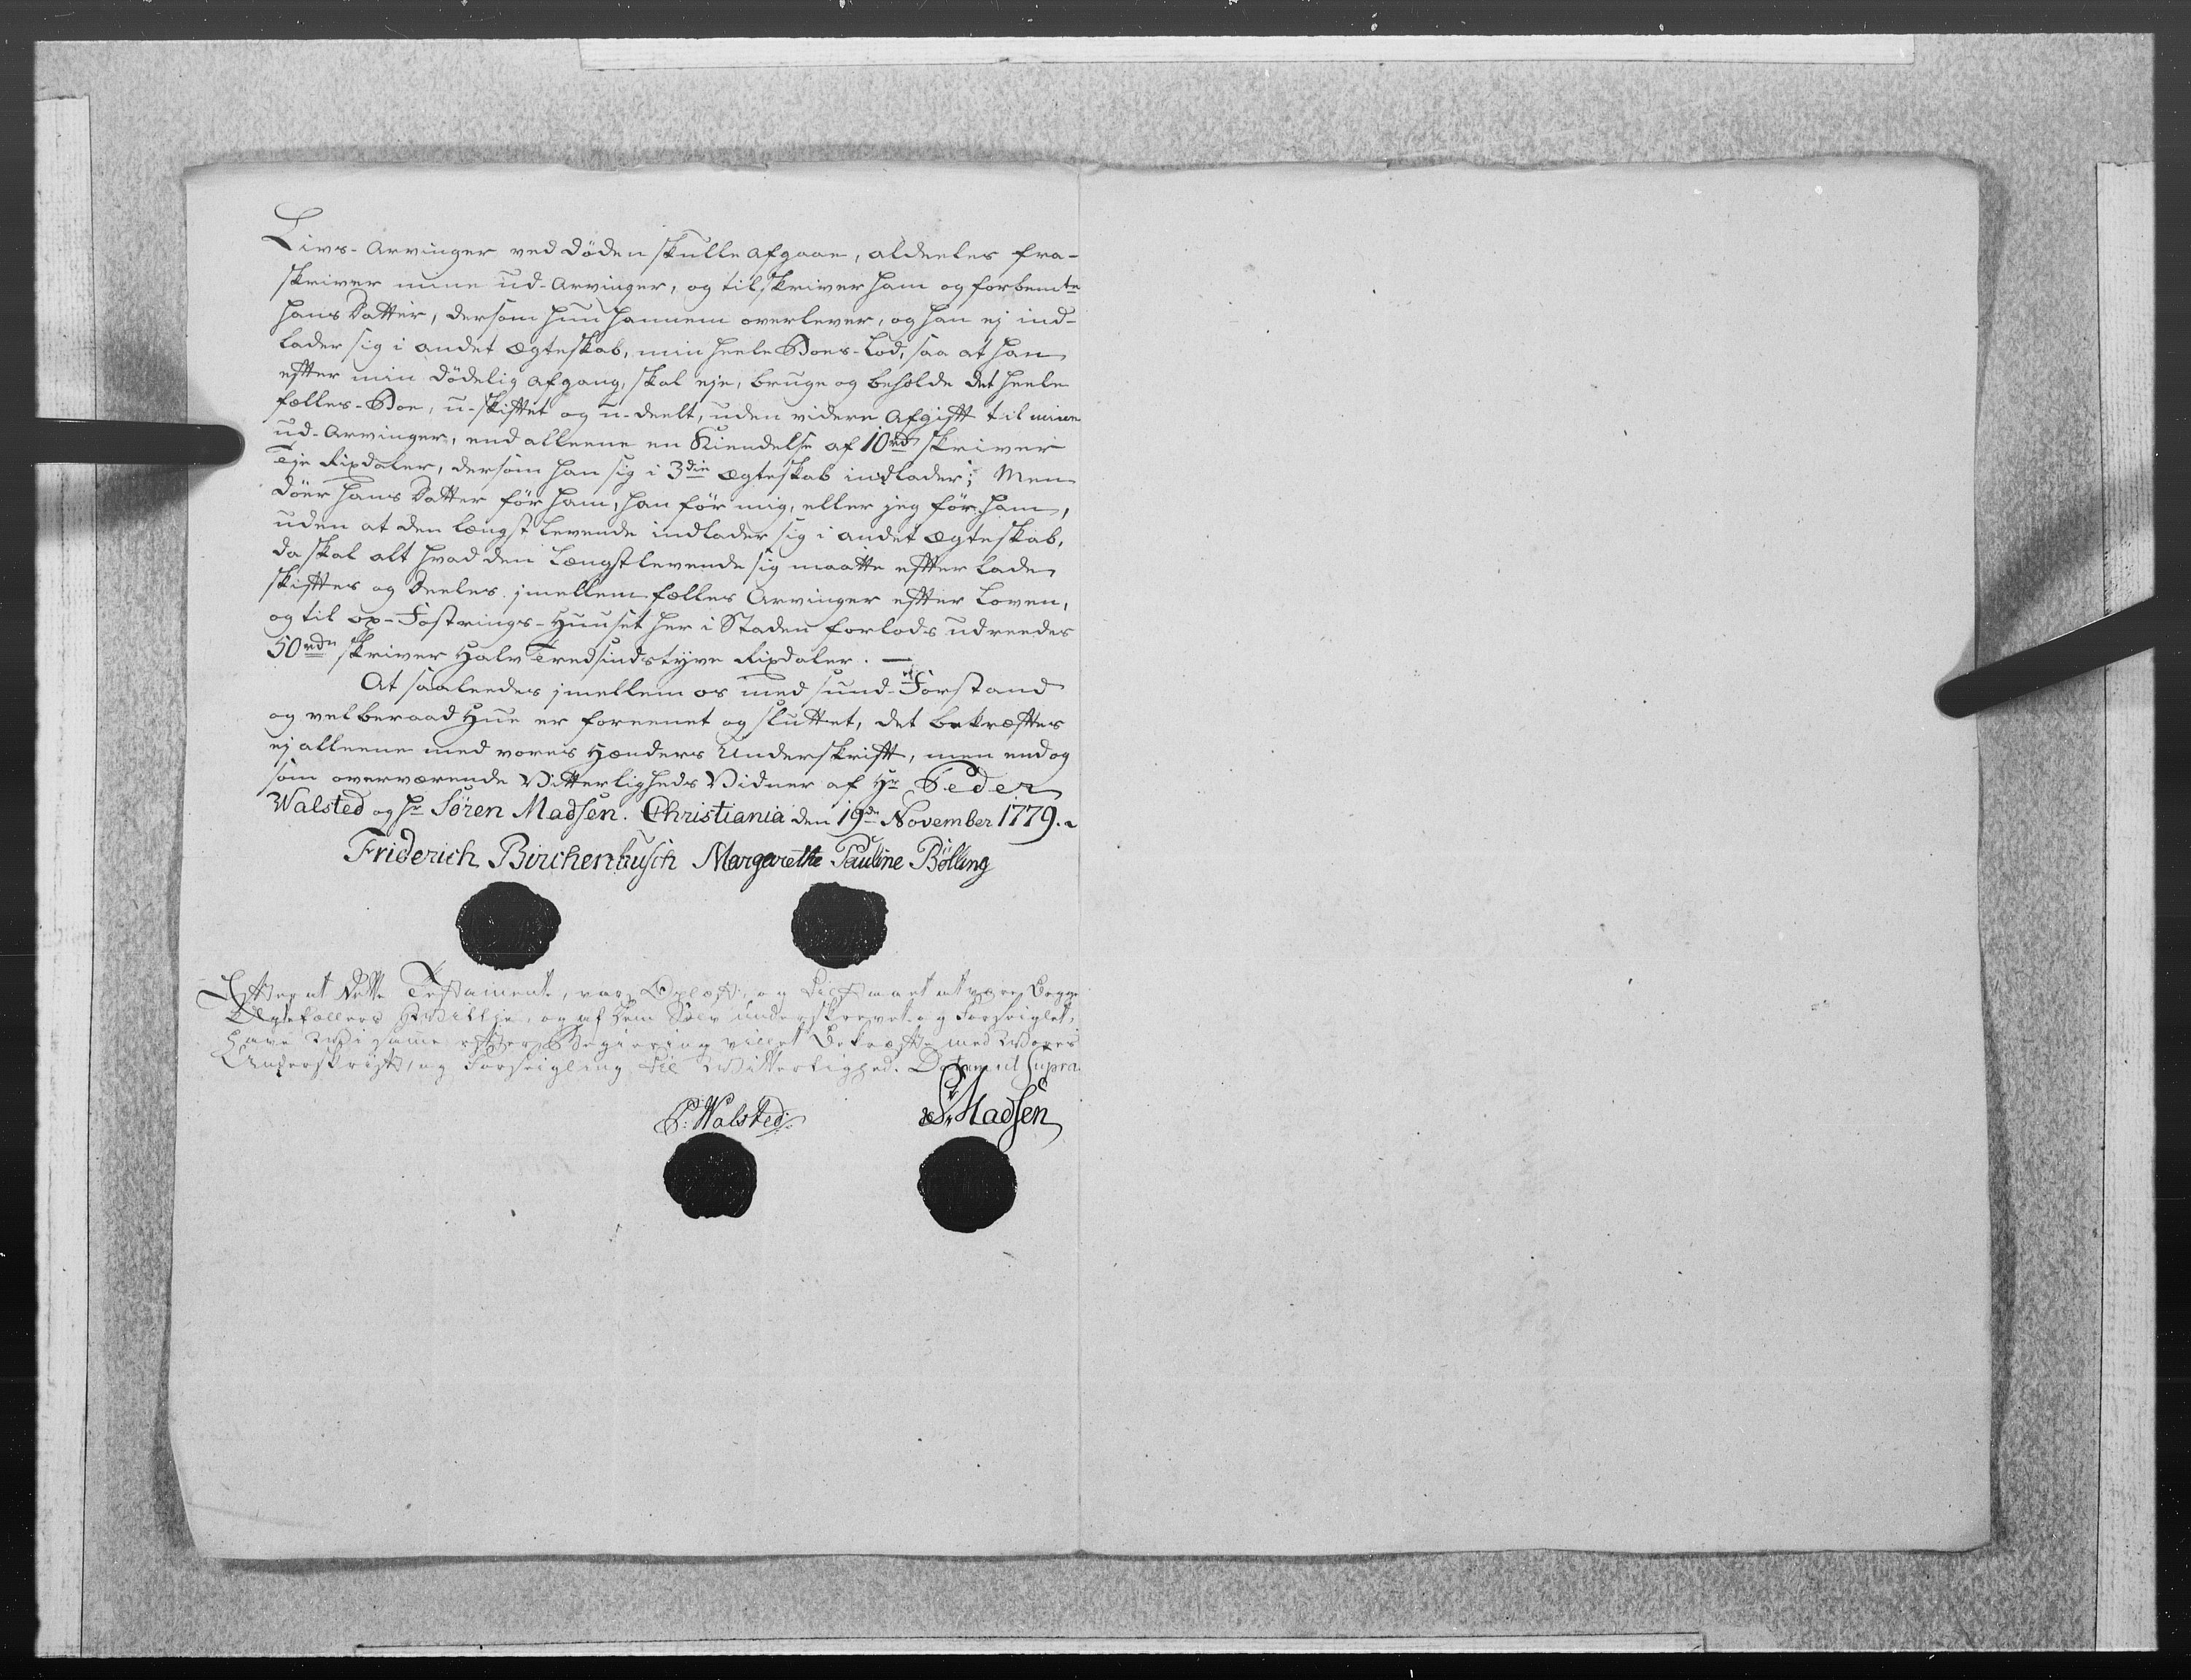 Livs-Arvinger ved Døden skulle afgaae, aldeeles fra-
skriver mine ud-Arvinger, og tilskriver ham og forbemte
hans Datter, dersom hun hannem overlever, og han ej ind-
lader sig i andet Ægteskab, min heele Boes-Lod, saa at han
efter min dødelig afgang, skal eje, bruge og beholde det heele
fælles-Boe, u-skiftet og u-deelt, uden videre afgift til mine
ud-Arvinger, end alleene en Kiendelse af 10rd skriver
Tje Rixdaler, dersom han sig i 3die Ægteskab indlader; Men
döer hans Datter før ham, han før mig, eller jeg før ham,
uden at den længst levende indlader sig i andet Ægteskab,
da skal alt hvad den Længstlevende sig maatte efterlade
skiftes og Deeles imellem fælles Arvinger efter Loven,
og til op-Fostrings-Huuset her i Staden forlods udreedes
50rdr skriver Halv Tredsindstyve Rixdaler. —
At saaleedes imellem os med sund Forstand
og velberaad Hue er foreenet og sluttet, det bekræftes
ej alleene med vores Hænders Underskrift, men endog
som overværende Vitterligheds Vidner af Hr Peder
Walsted og Hr Søren Madsen. Christiania den 19de November 1779.
Friderich Birchenbusch Margarethe Pauline Bölling
Efter at dette Testamente, var Oplæst, og tilstaaet at være begge
Ægtefællers Willje, og af dem Selv underskrevet og Forseiglet,
have Wi samme efter Begiering villet Bekræfte med Wores
Underskrift, og Forseigling til Witterlighed. Datum ut Supra.
P: Walsted
S. Madsen